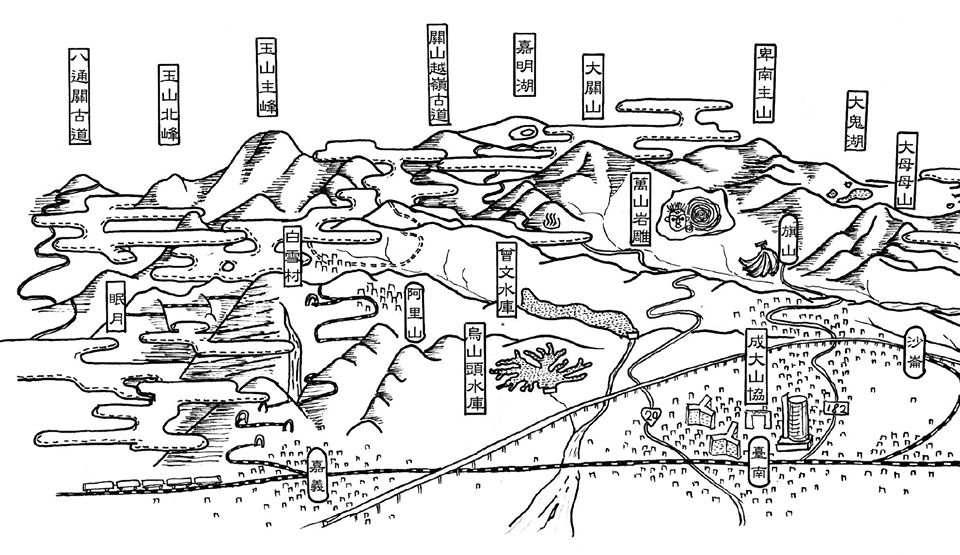 八通關古道
玉山北峰
玉山主峰
關山越嶺古道
嘉明湖
大關山
卑南主山
大鬼湖
大母母山
萬山岩雕
旗山
白雪村
曾文水庫
眠月
阿里山
烏山頭水庫
成大山協
沙崙
20
182
臺南
嘉義